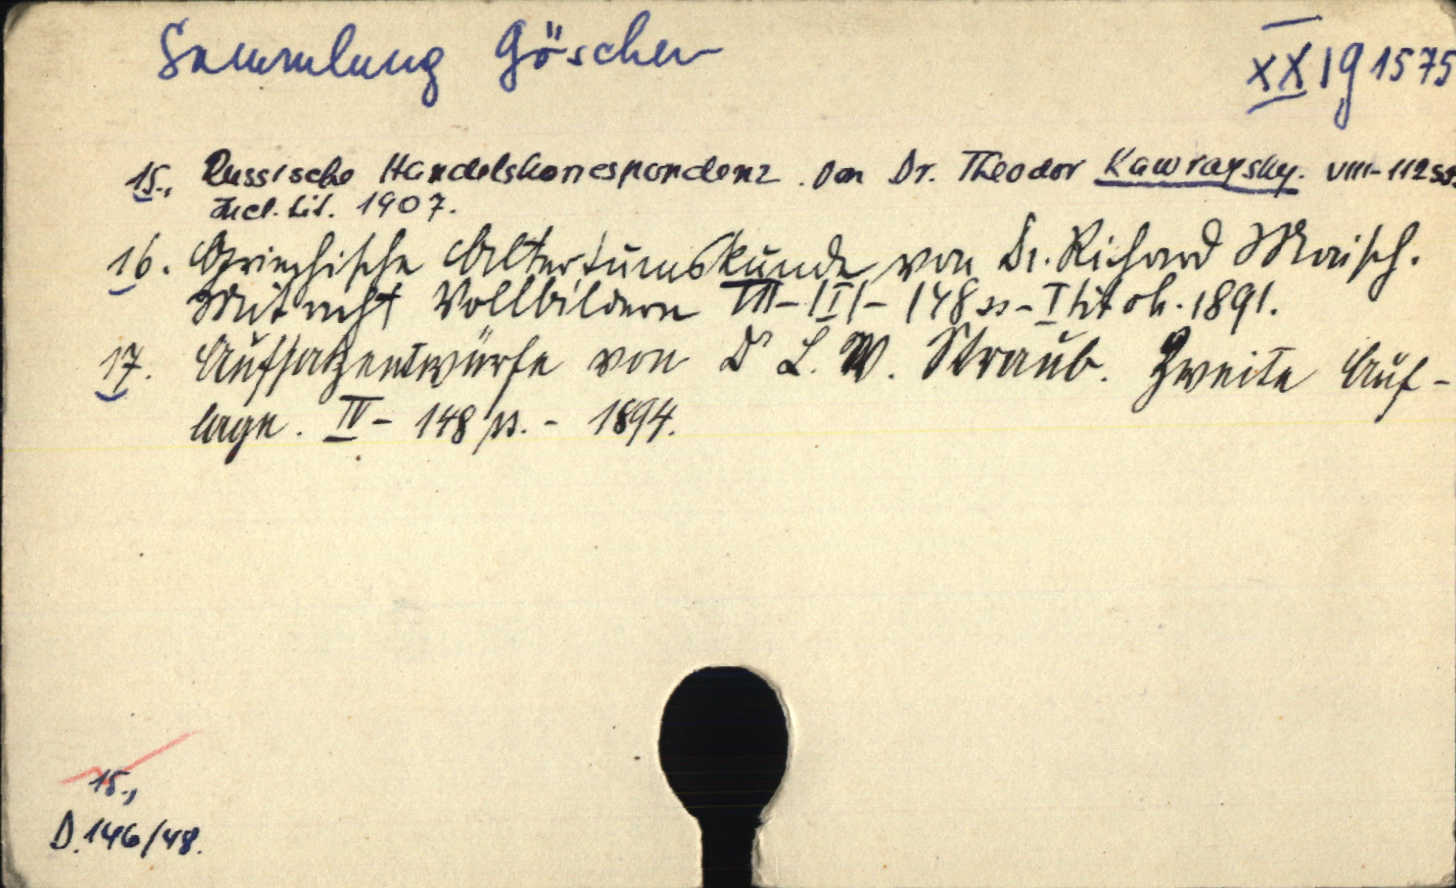 Sammlung Göschen
XX 19 1575
15., Russische Handelskorrespondenz. von Dr. Theodor Kawraysky. VIII-112 ss.
incl. tit. 1907.
16. Griechische Altertumskunde von Dr. Richard Maisch.
Mit acht Vollbildern VIII- III- 148 ss - I tit ok. 1891.
17. Aufsatzentwürfe von Dr L. W. Straub. Zweite Auf-
lage. IV- 148 ss. - 1894.
15.,
D. 146/48.